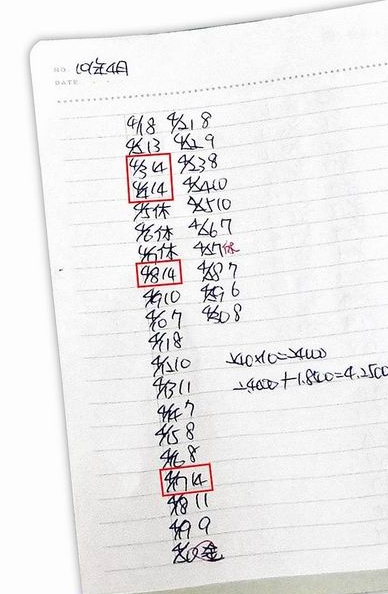 NO. 101年4月
DATE
4/1 8
4/2 13
4/3 14
4/4 14
4/5 休
4/6 休
4/7 休
4/8 14
4/9 10
4/10 7
4/11 8
4/12 10
4/13 11
4/14 7
4/15 8
4/16 8
4/17 14
4/18 11
4/19 9
4/20
4/21 8
4/22 9
4/23 8
4/24 10
4/25 10
4/26 7
4/27 休
4/28 7
4/29 6
4/30 8
240×10=2400